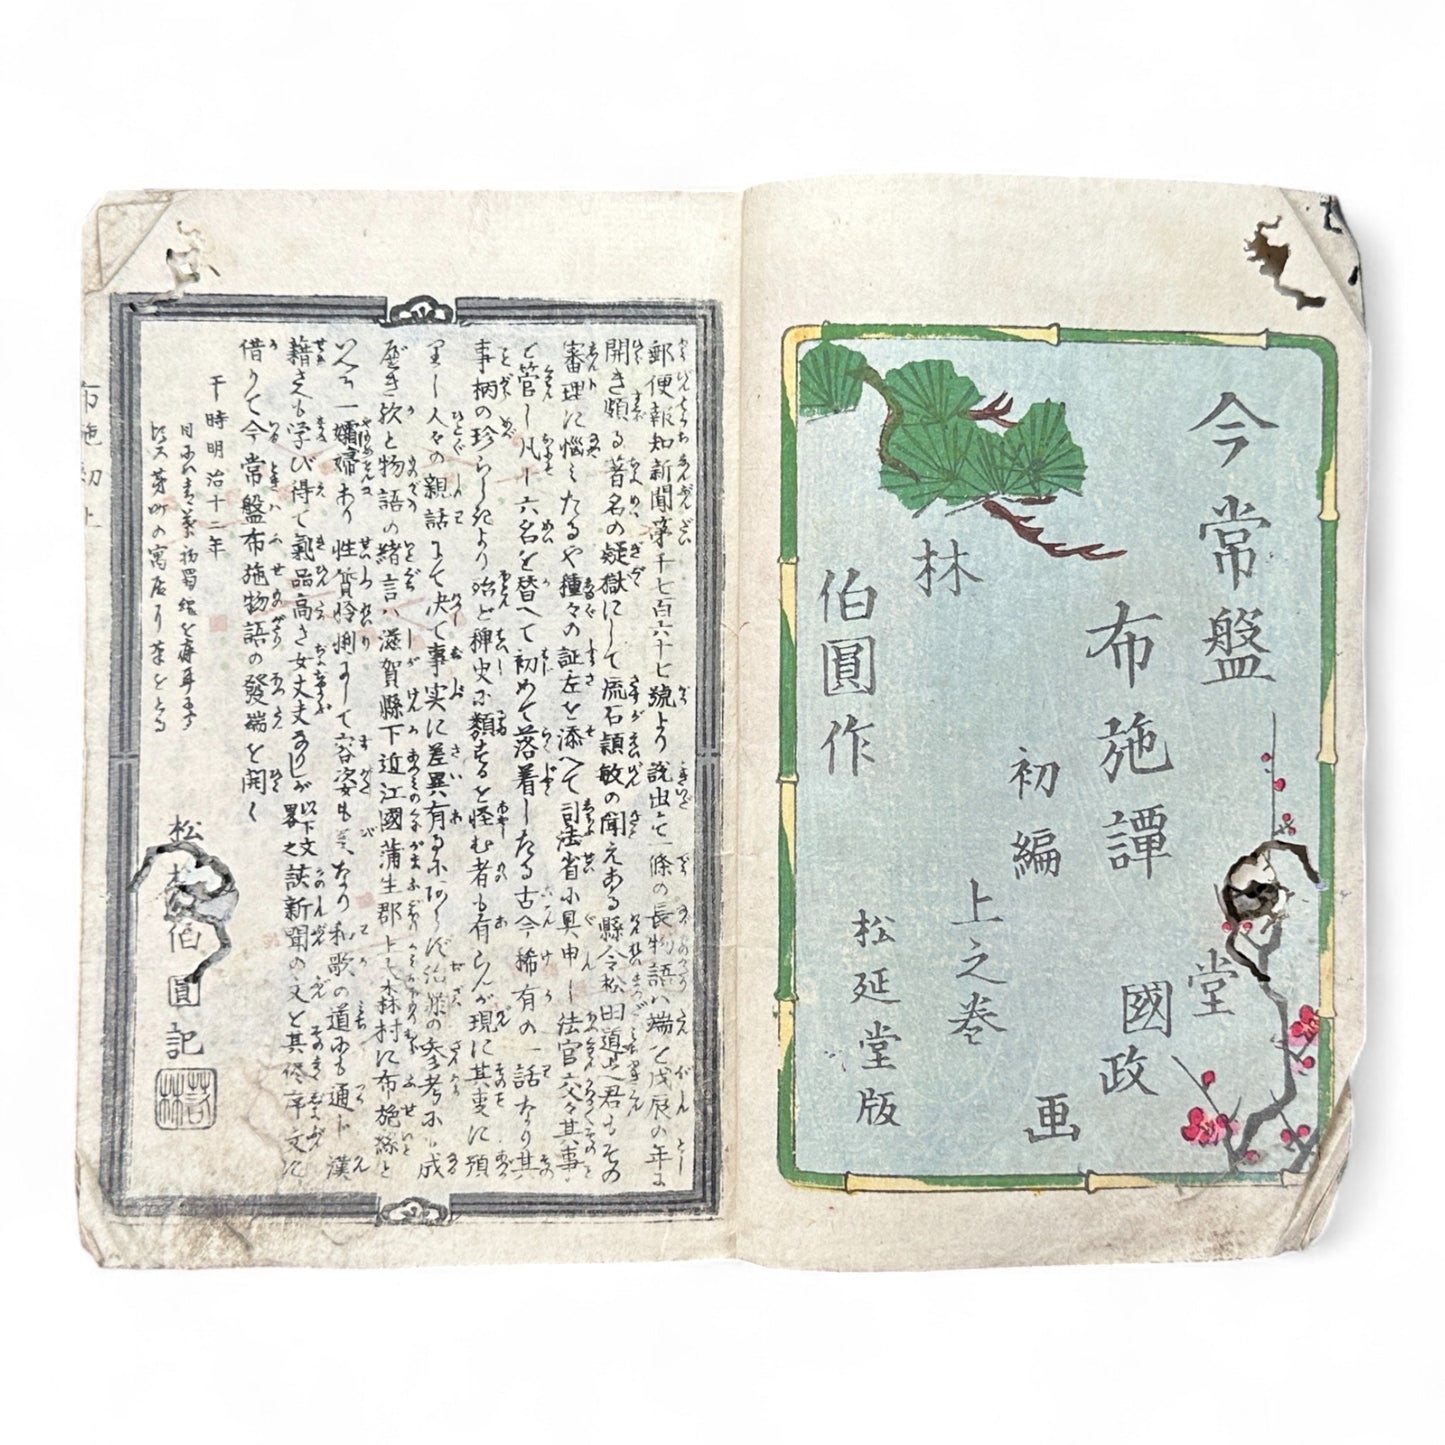 今常盤
布施譚
初編
上之巻
林
伯圓作
松延堂版
堂
國政
画
郵便報知新聞第千七百六十七號より説出せる一條の長物語ハ端を戊辰の年に
開き頗る著名の疑獄にして流石頴敏の聞えある縣令松田道之君もその
審理に悩ミたるや種々の証左を添へて司法省に具申し法官交々其事
を管し凡十六名を替へて初めて落着したる古今稀有の一話なり其
事柄の珍らしきより殆ど稗史に類するを怪む者も有らんが現に其変に預
りし人々の親話にて决て事実に差異有るにあらず治獄の参考にも成
べき歟と物語の緒言ハ滋賀縣下近江國蒲生郡上大森村に布施絲と
いへる一孀婦あり性質怜悧にして容姿も美くなり和歌の道にも通じ漢
籍さへも学び得て氣品高き女丈夫なりしが以下文畧之該新聞の文を其侭平文に
借りて今常盤布施物語の發端を開く
干時明治十二年
松 伯圓記
布施初上